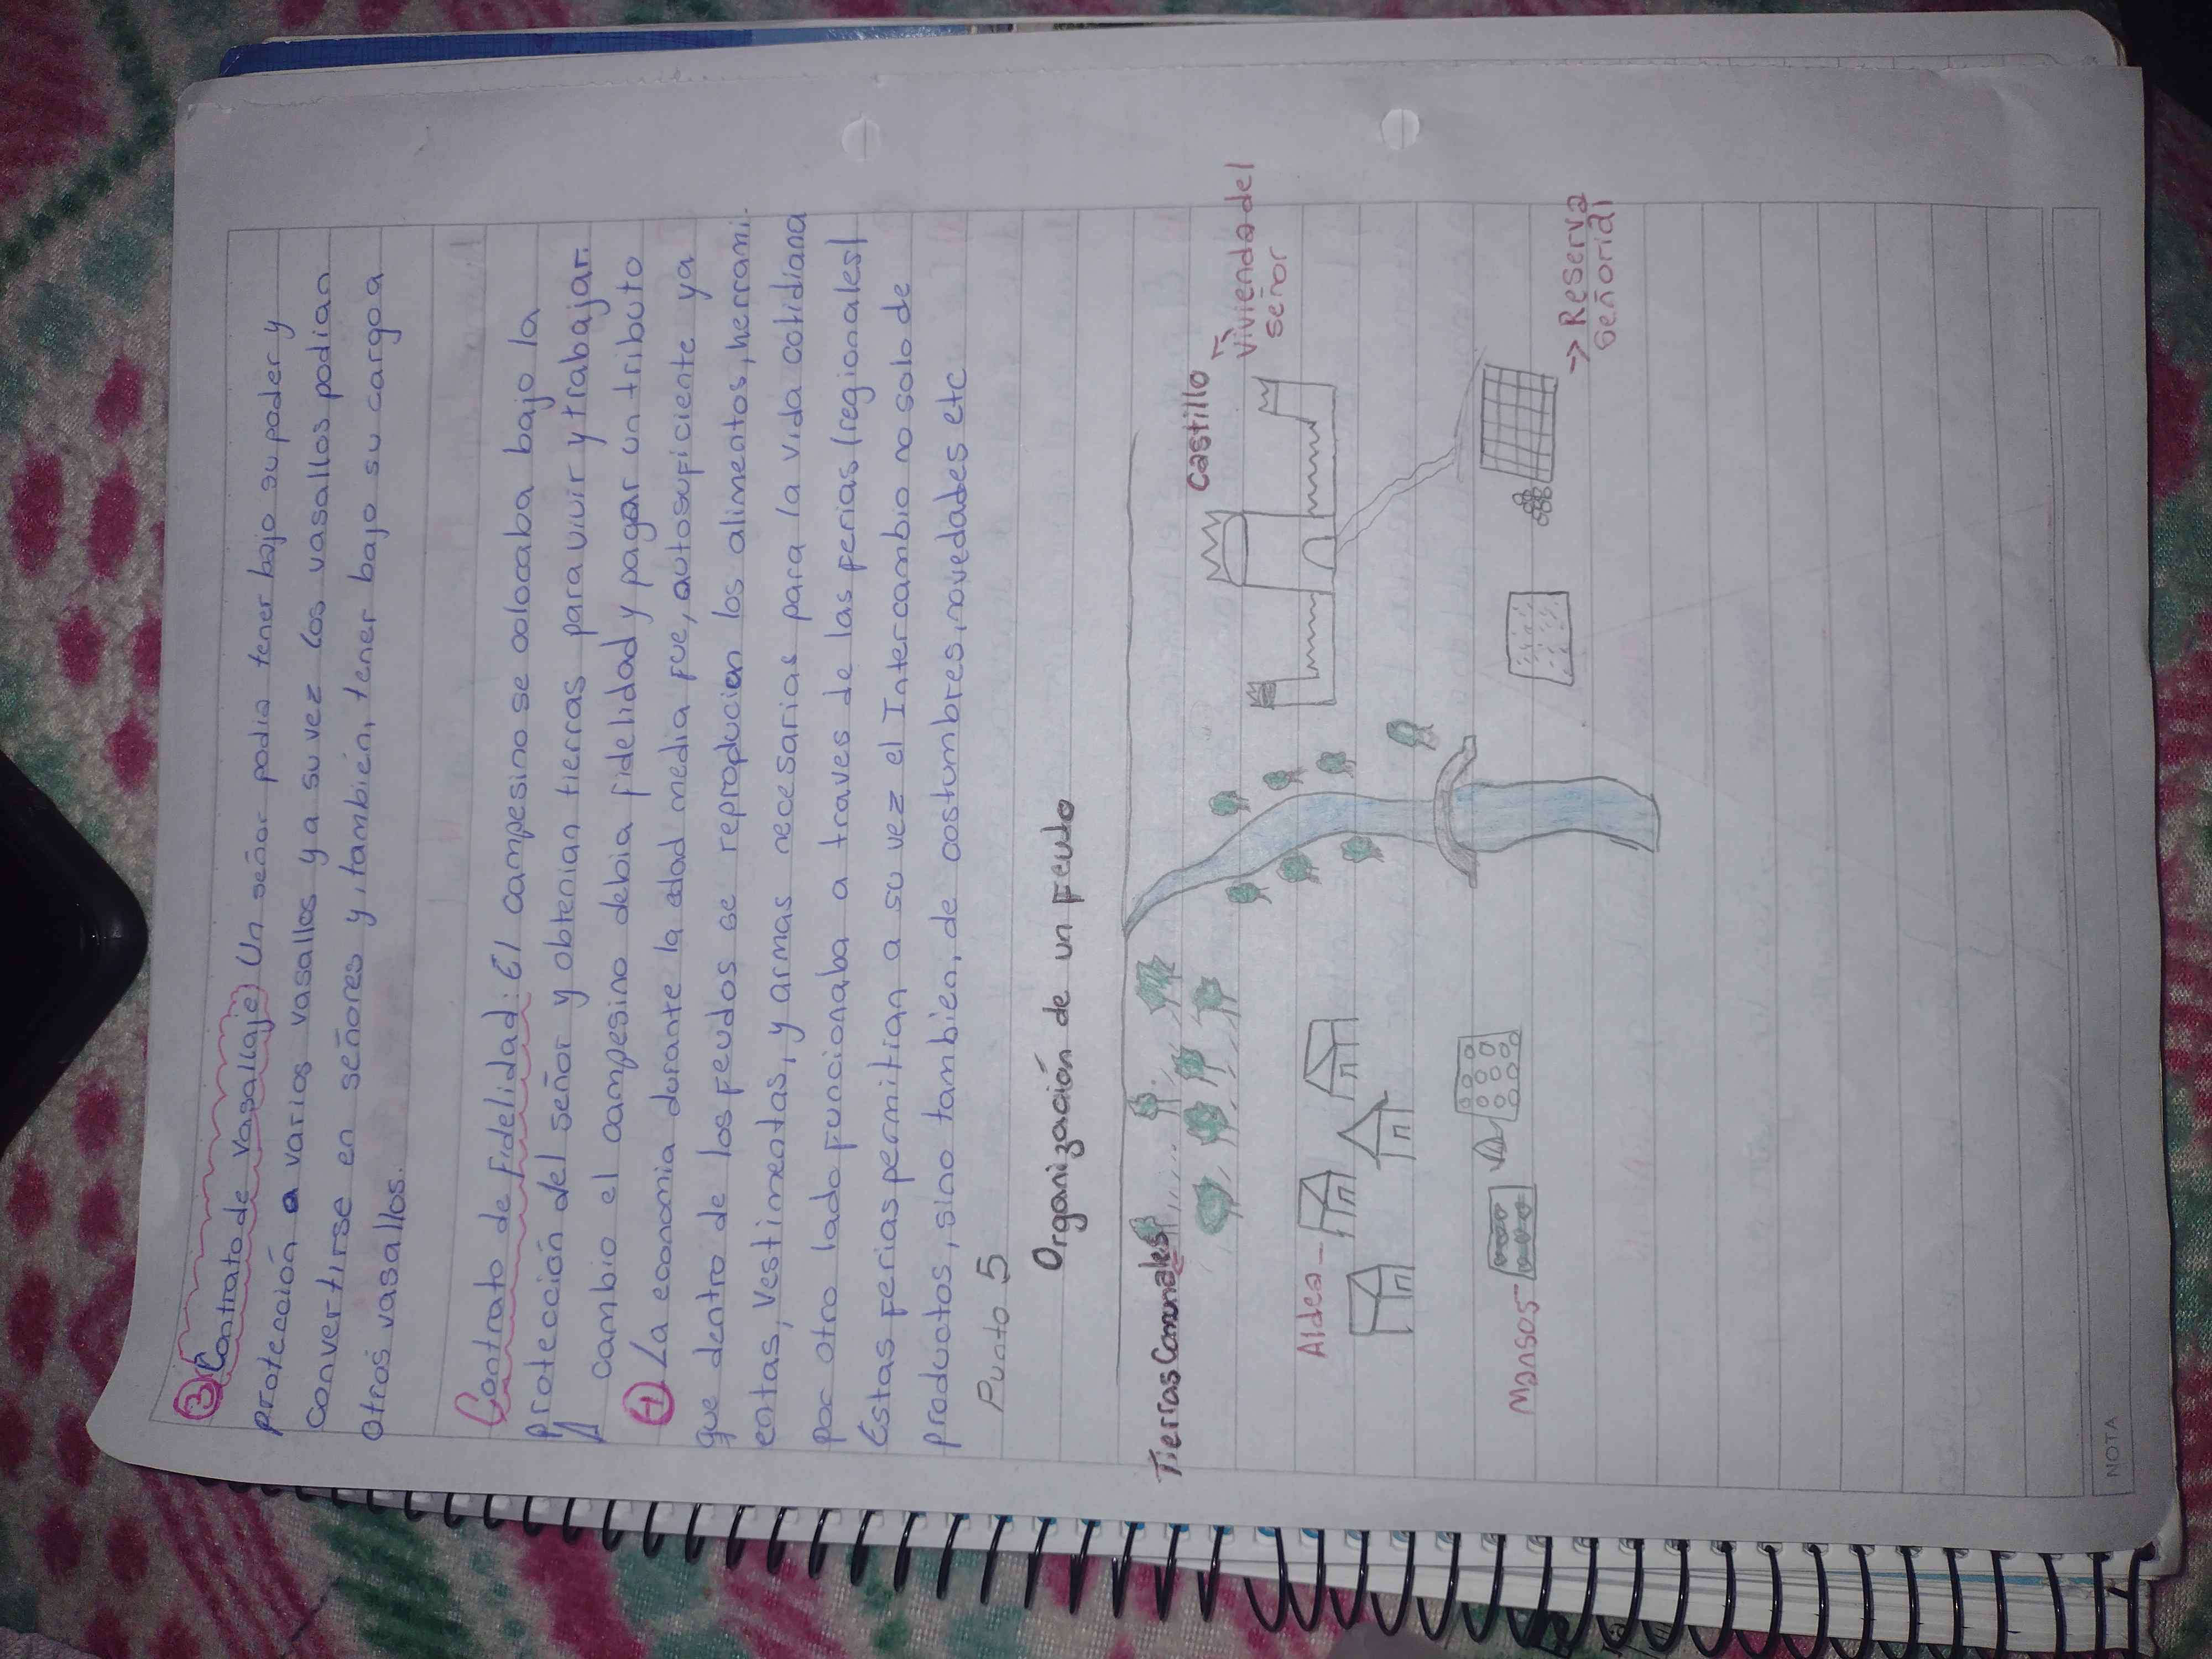 ③ Contrato de vasallaje) Un señor podia tener bajo su poder y
protección a varios vasallos y a su vez los vasallos podian
convertirse en señores y, también, tener bajo su cargo a
otros vasallos.
Contrato de fidelidad: El campesino se colocaba bajo la
protección del señor y obtenian tierras para vivir y trabajar.
A cambio el campesino debia fidelidad y pagar un tributo
④ La economia durante la edad media fue, autosuficiente ya
que dentro de los feudos se reproducien los alimentos, herrami-
entas, vestimentas, y armas necesarias para la vida cotidiana
por otro lado funcionaba a traves de las ferias (regionales)
Estas ferias permitian a su vez el Intercambio no solo de
productos, sino tambien, de costumbres, novedades etc
Punto 5
Organización de un Feudo
Tierras Comunales
Castillo
Vivienda del
señor
Aldea -
Mansos -
→ Reserva
señorial
NOTA